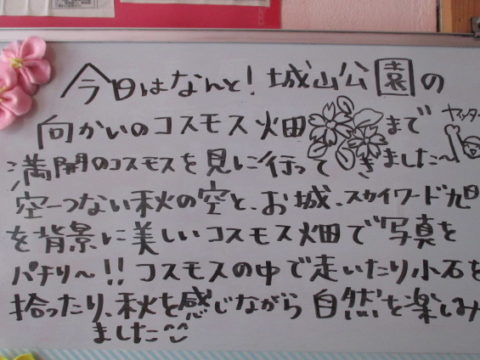 今日はなんと!城山公園の
向かいのコスモス畑まで
ヤッター
満開のコスモスを見に行ってきました～
空一つない秋の空と、お城、スカイワード旭
を背景に美しいコスモス畑で写真を
パチリ～!!コスモスの中で走いたり小石を
拾ったり、秋を感じながら自然を楽しみ
ました